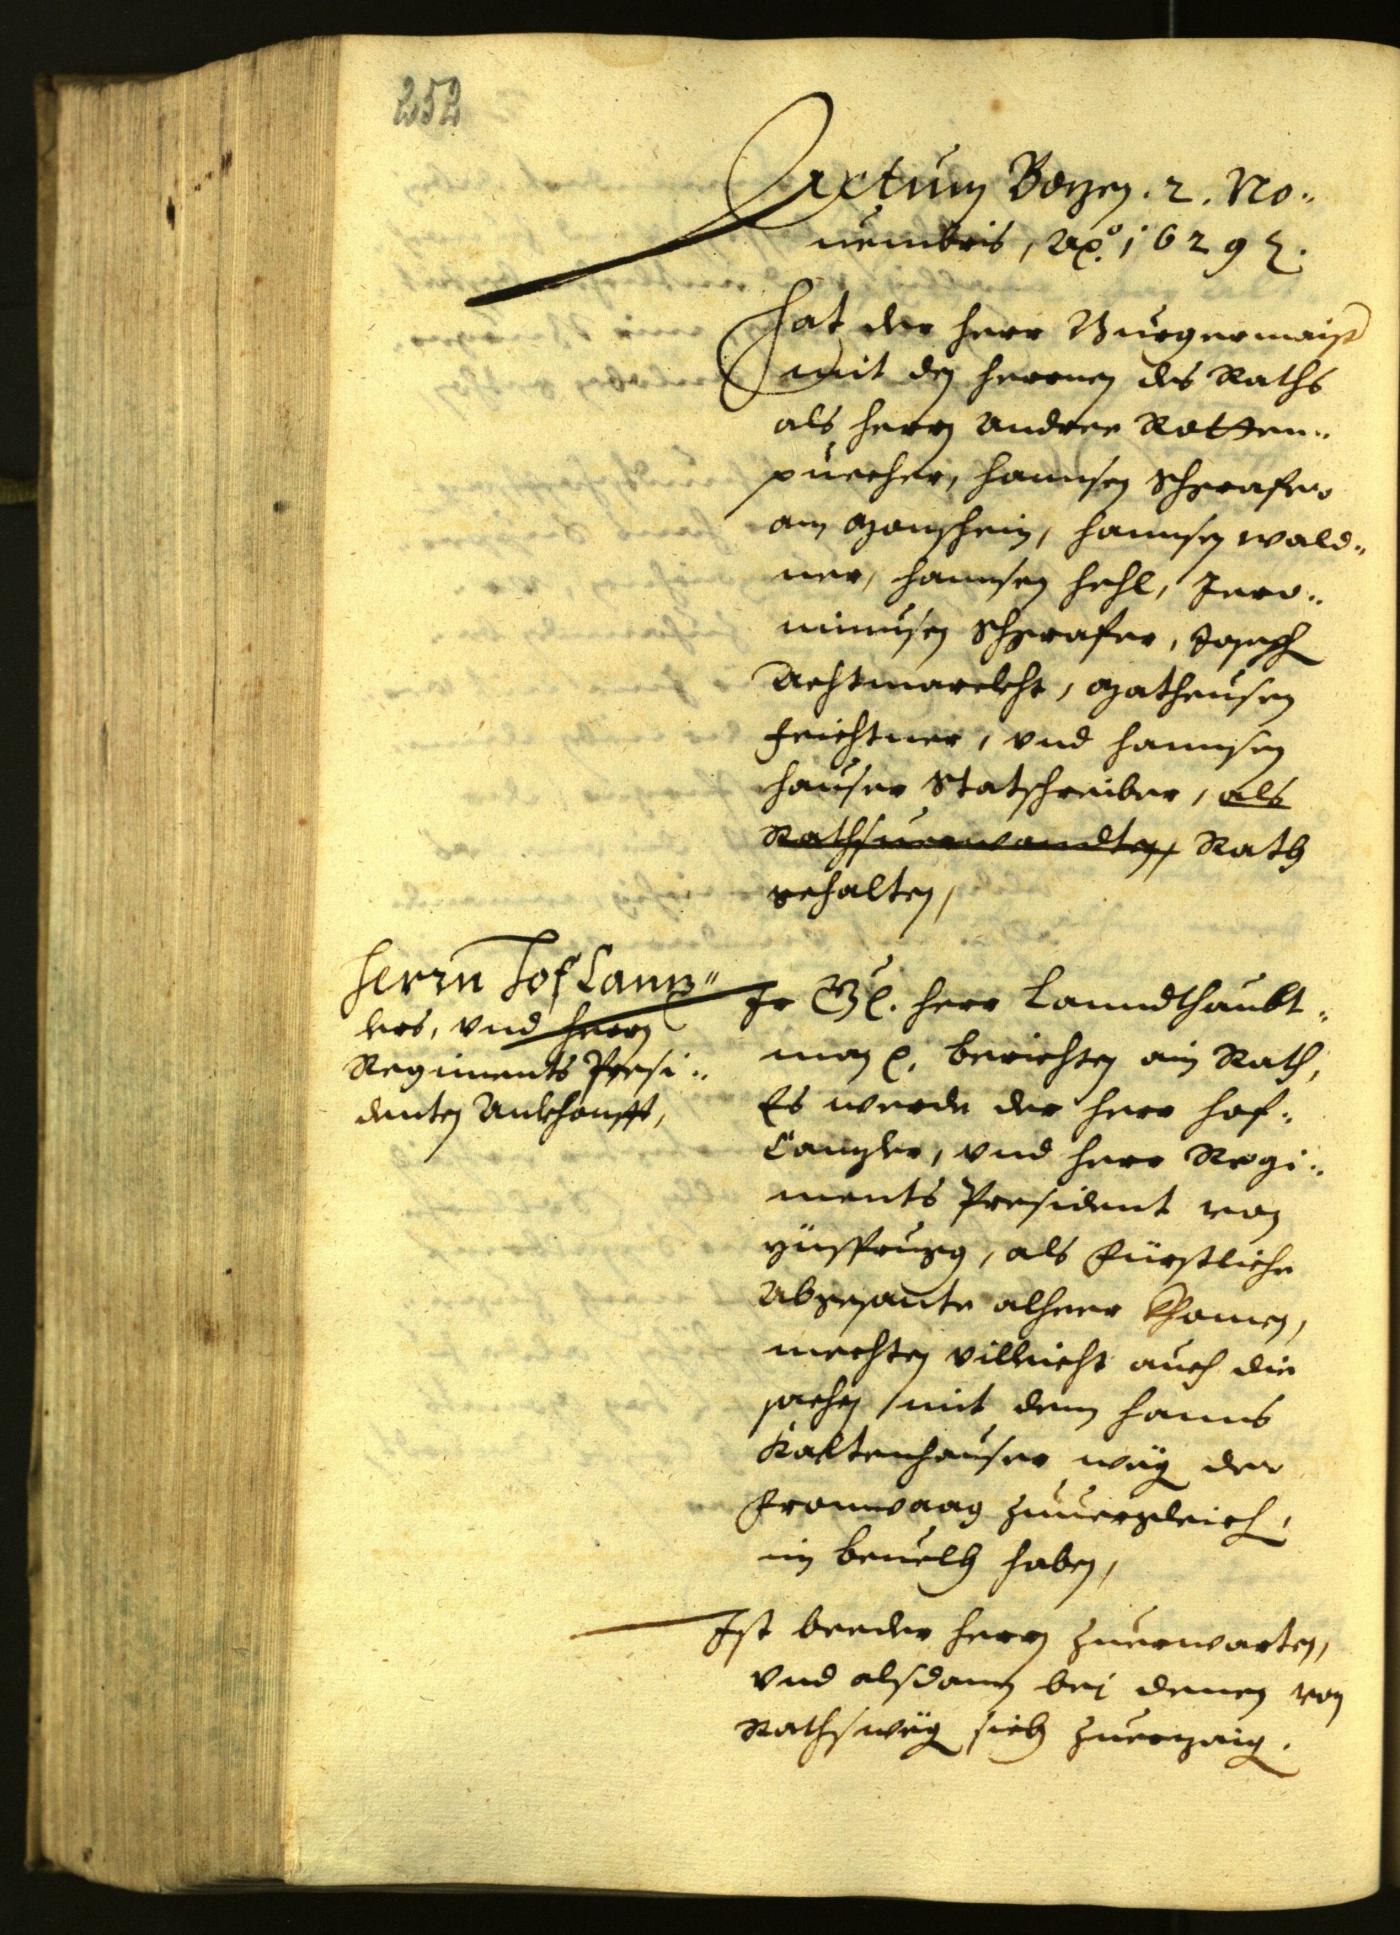 252
Actum Bozen. 2. No-
uembris, Ao. 1629 ꝛ.
Hat der herr Burgermaister
mit den herrnen des Raths
als herrn Andree Rotten-
puecher, Hannsen Schgrafer
am Monschein, Hannsen Wald-
ner, Hannsen Hehl, Jero-
nimusen Schgrafer, Joseph
Achtmarckht, Matheusen
Feichtner, vnd Hannsen
Hauser Statschreiber, als
Rathsuerwandten, Rath
gehalten,
Herrn Hof Canz-
lers, vnd herrn
Regiments Presi-
denten Ankhonfft,
Ir Gl. herr Lanndthaubt-
man ꝛ. berichten ain Rath,
Es werde der herr Hof-
Canzler, vnd herr Regi-
ments President von
Ynsprugg, als Fürstliche
Abgesante alheer khomen,
mechten villeicht auch die
sachen mit dem Hanns
Kaltenhauser weg der
Fronwaag zuuergleich,
in beuelh haben,
Ist beeder herrn zuerwarten,
vnd alsdann bej denen von
Raths weg sich zuerzaig.